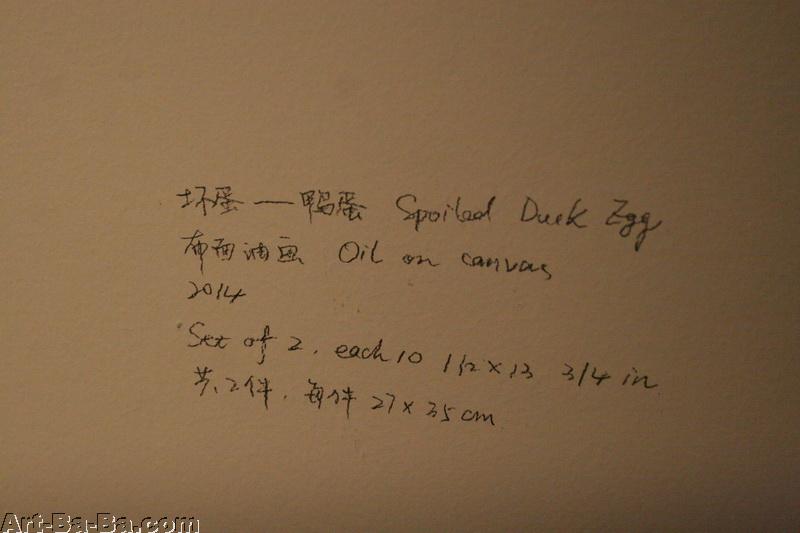 坏蛋——鸭蛋 Spoiled Duck Egg
布面油画 Oil on canvas
2014
Set of 2, each 10 1/2 × 13 3/4 in
共2件,每件 27 × 35 cm
Art-Ba-Ba.com